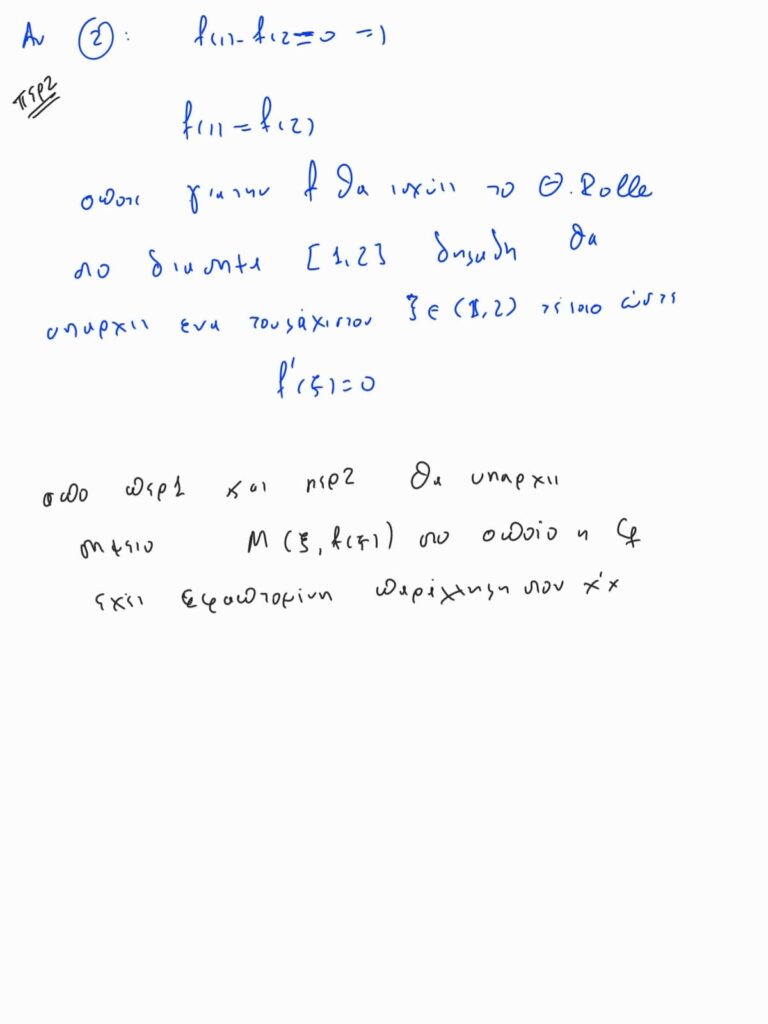 Αν ②: f(1)-f(2)=0 =)
περ2
f(1)=f(2)
οποτε για την f θα ισχύει το Θ.Rolle
στο διαστημα [1,2] δηλαδη θα
υπαρχει ενα τουλάχιστον ξ∈(1,2) τέτοιο ώστε
f'(ξ)=0
απο περ1 και περ2 θα υπαρχει
σημειο M(ξ,f(ξ)) στο οποίο η Cf
έχει εφαπτομένη παράλληλη στον x'x